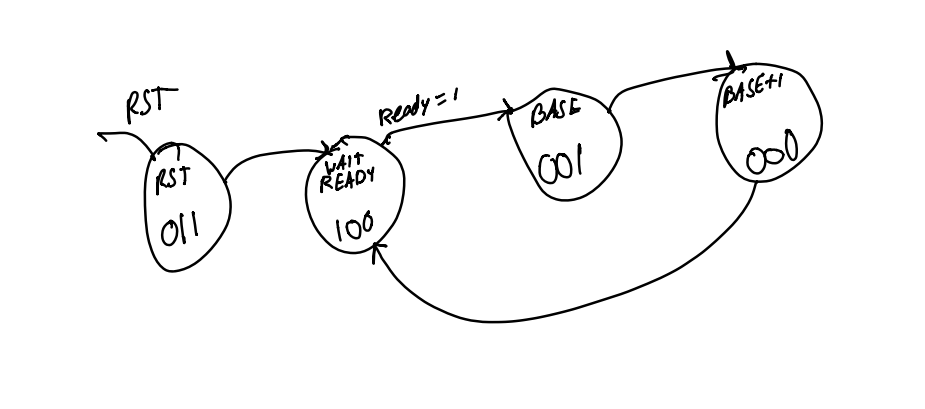 RST
RST
011
WAIT
READY
100
Ready=1
BASE
001
BASE+1
000